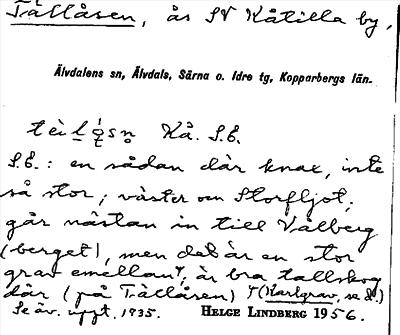 Tällåsen, ås SV Kåtilla by,
Älvdalens sn, Älvdals, Särna o. Idre tg, Kopparbergs län.
Kå. S.E.
S.E.: en sådan där knax, inte
så stor; väster om Storfljot;
går nästan in till Vålberg
(berget), men det är en stor
grav emellan, är bra tallskog
där (på Tällåsen) (Karlgrav, se d.o.)
Se äv. uppt. 1935. HELGE LINDBERG 1956.